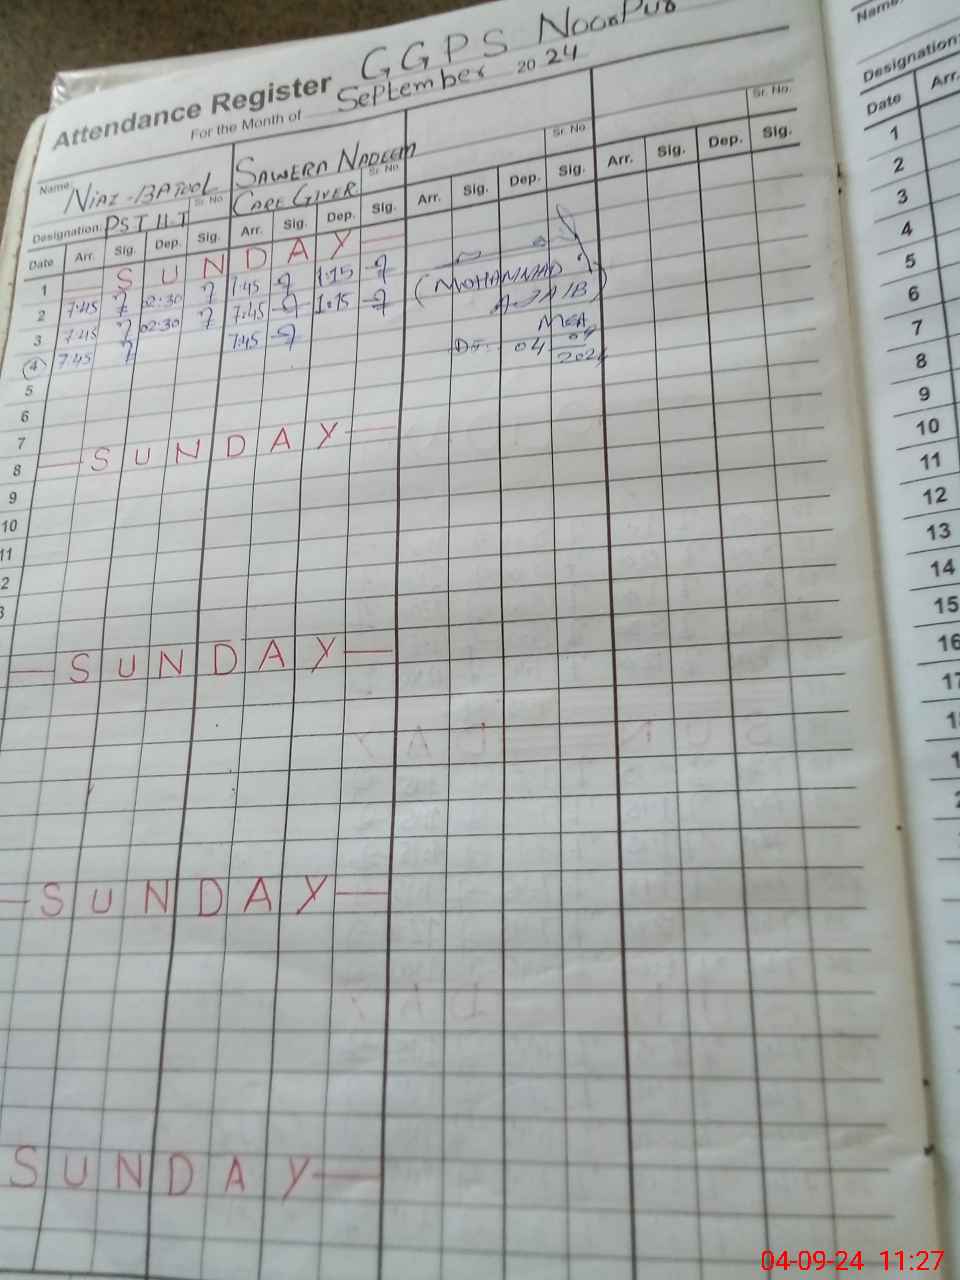 Attendance Register GGPS Noor Pur
For the Month of September 20 24
Name: Niaz-Batool Sawera Nadeem
Sr. No. Sr. No. Sr. No. Sr. No.
Designation: PST H.T Care Giver
Date Arr. Sig. Dep. Sig. Arr. Sig. Dep. Sig. Arr. Sig. Dep. Sig. Arr. Sig. Dep. Sig.
1 — SUNDAY —
2 7:45 02:30 7:45 1:15
3 7:45 02:30 7:45 1:15
4 7:45 7:45
(MOHAMMAD
AJAIB)
MEA
Dt: 04 09 2024
5
6
7
8 — SUNDAY —
9
10
11
2
3
— SUNDAY —
— SUNDAY —
SUNDAY —
Name:
Designation:
Date Arr.
1
2
3
4
5
6
7
8
9
10
11
12
13
14
15
16
17
04-09-24 11:27